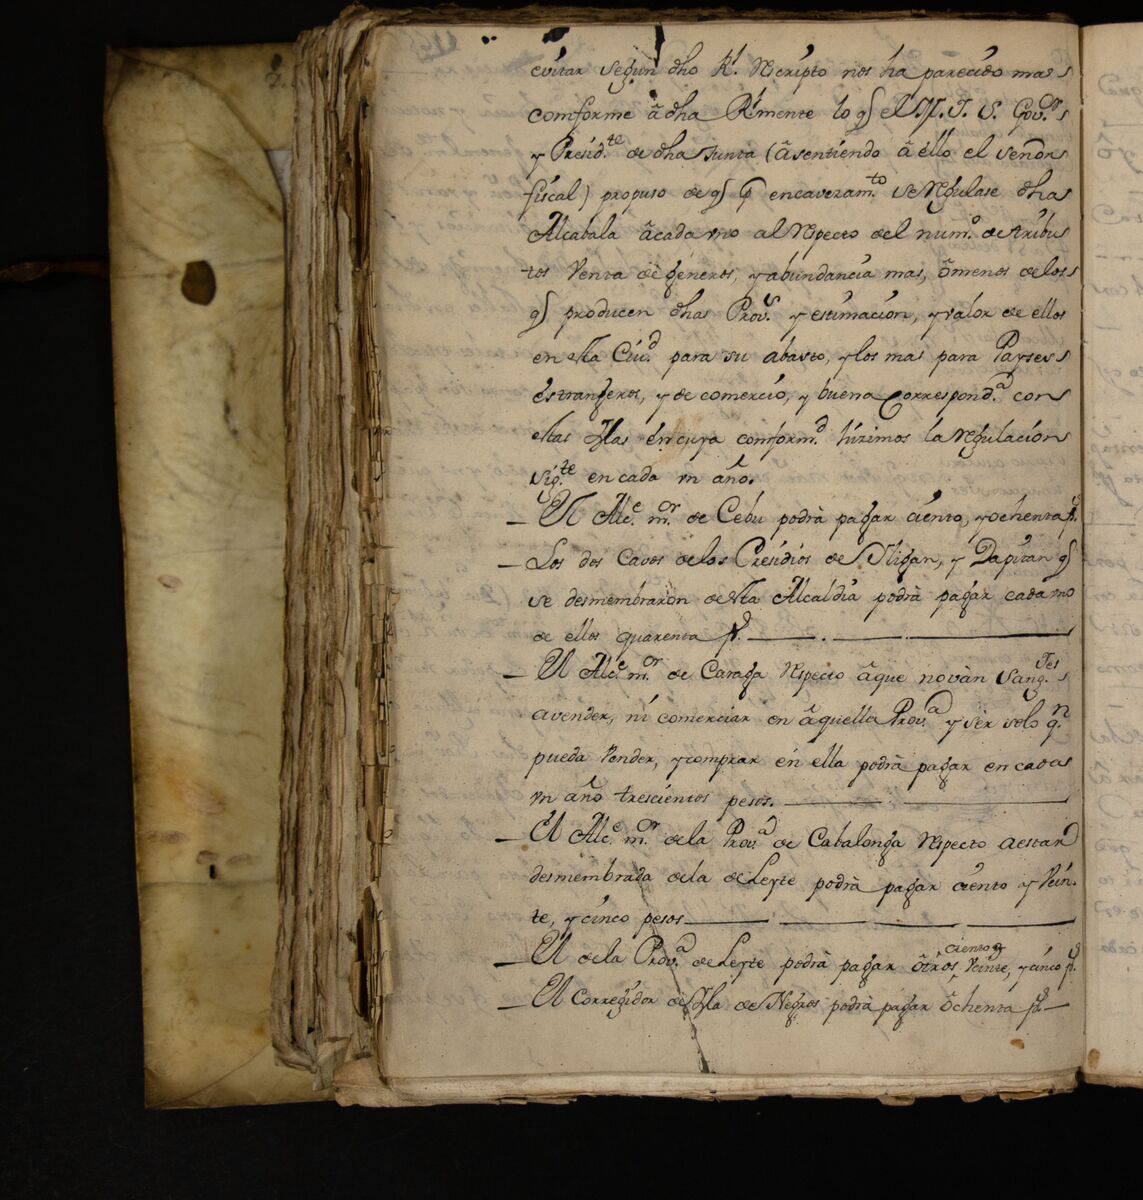 evitar según dho Rl. Rescripto nos ha parecido mas
comforme â dha Rl mente lo q el M. I. S. Govor.
y Presidte. de dha Junta (âsentiendo â ello el señor
fiscal) propuso de q pr encavezamto. se Regulase dhas
Alcabala âcada vno al Respecto del numo. de tribu
tos Venta de géneros, y abundancia mas, ômenos de los
q producen dhas Provs. y estimacion, y valor de ellos
en esta Ciud. para su abasto, y los mas para Payses
éstrangeros, y de comercio, y buena Correspondª. con
estas Yslas én cuya comformd. hizimos la regulacion
sigte. en cada vn año.
— El Alce. mor. de Cebu podrà pagar ciento, y ochenta ps.
— Los dos Cavos de los Presidios de Yligan, y Dapitan q
se desmembraron de esta Alcaldia podrà pagar cada vno
de ellos quarenta ps.
— El Alce. mor. de Caraga Respecto âque no vàn Sangles.
avender, ni comerciar en âquella Provª. y ser solo qn.
pueda Vender, y comprar én ella podrà pagar en cada
vn año trescientos pesos.
— El Alce. mor. de la Provª. de Cabalonga Respecto aestar
desmembrada de la de Leyte podrà pagar ciento y Vein-
te, y cinco pesos
— El de la Provª. de Leyte podrà pagar ôtros ciento y Veinte, y cinco ps.
— El Corregidor de Ysla de Negros podrà pagar ôchenta ps.